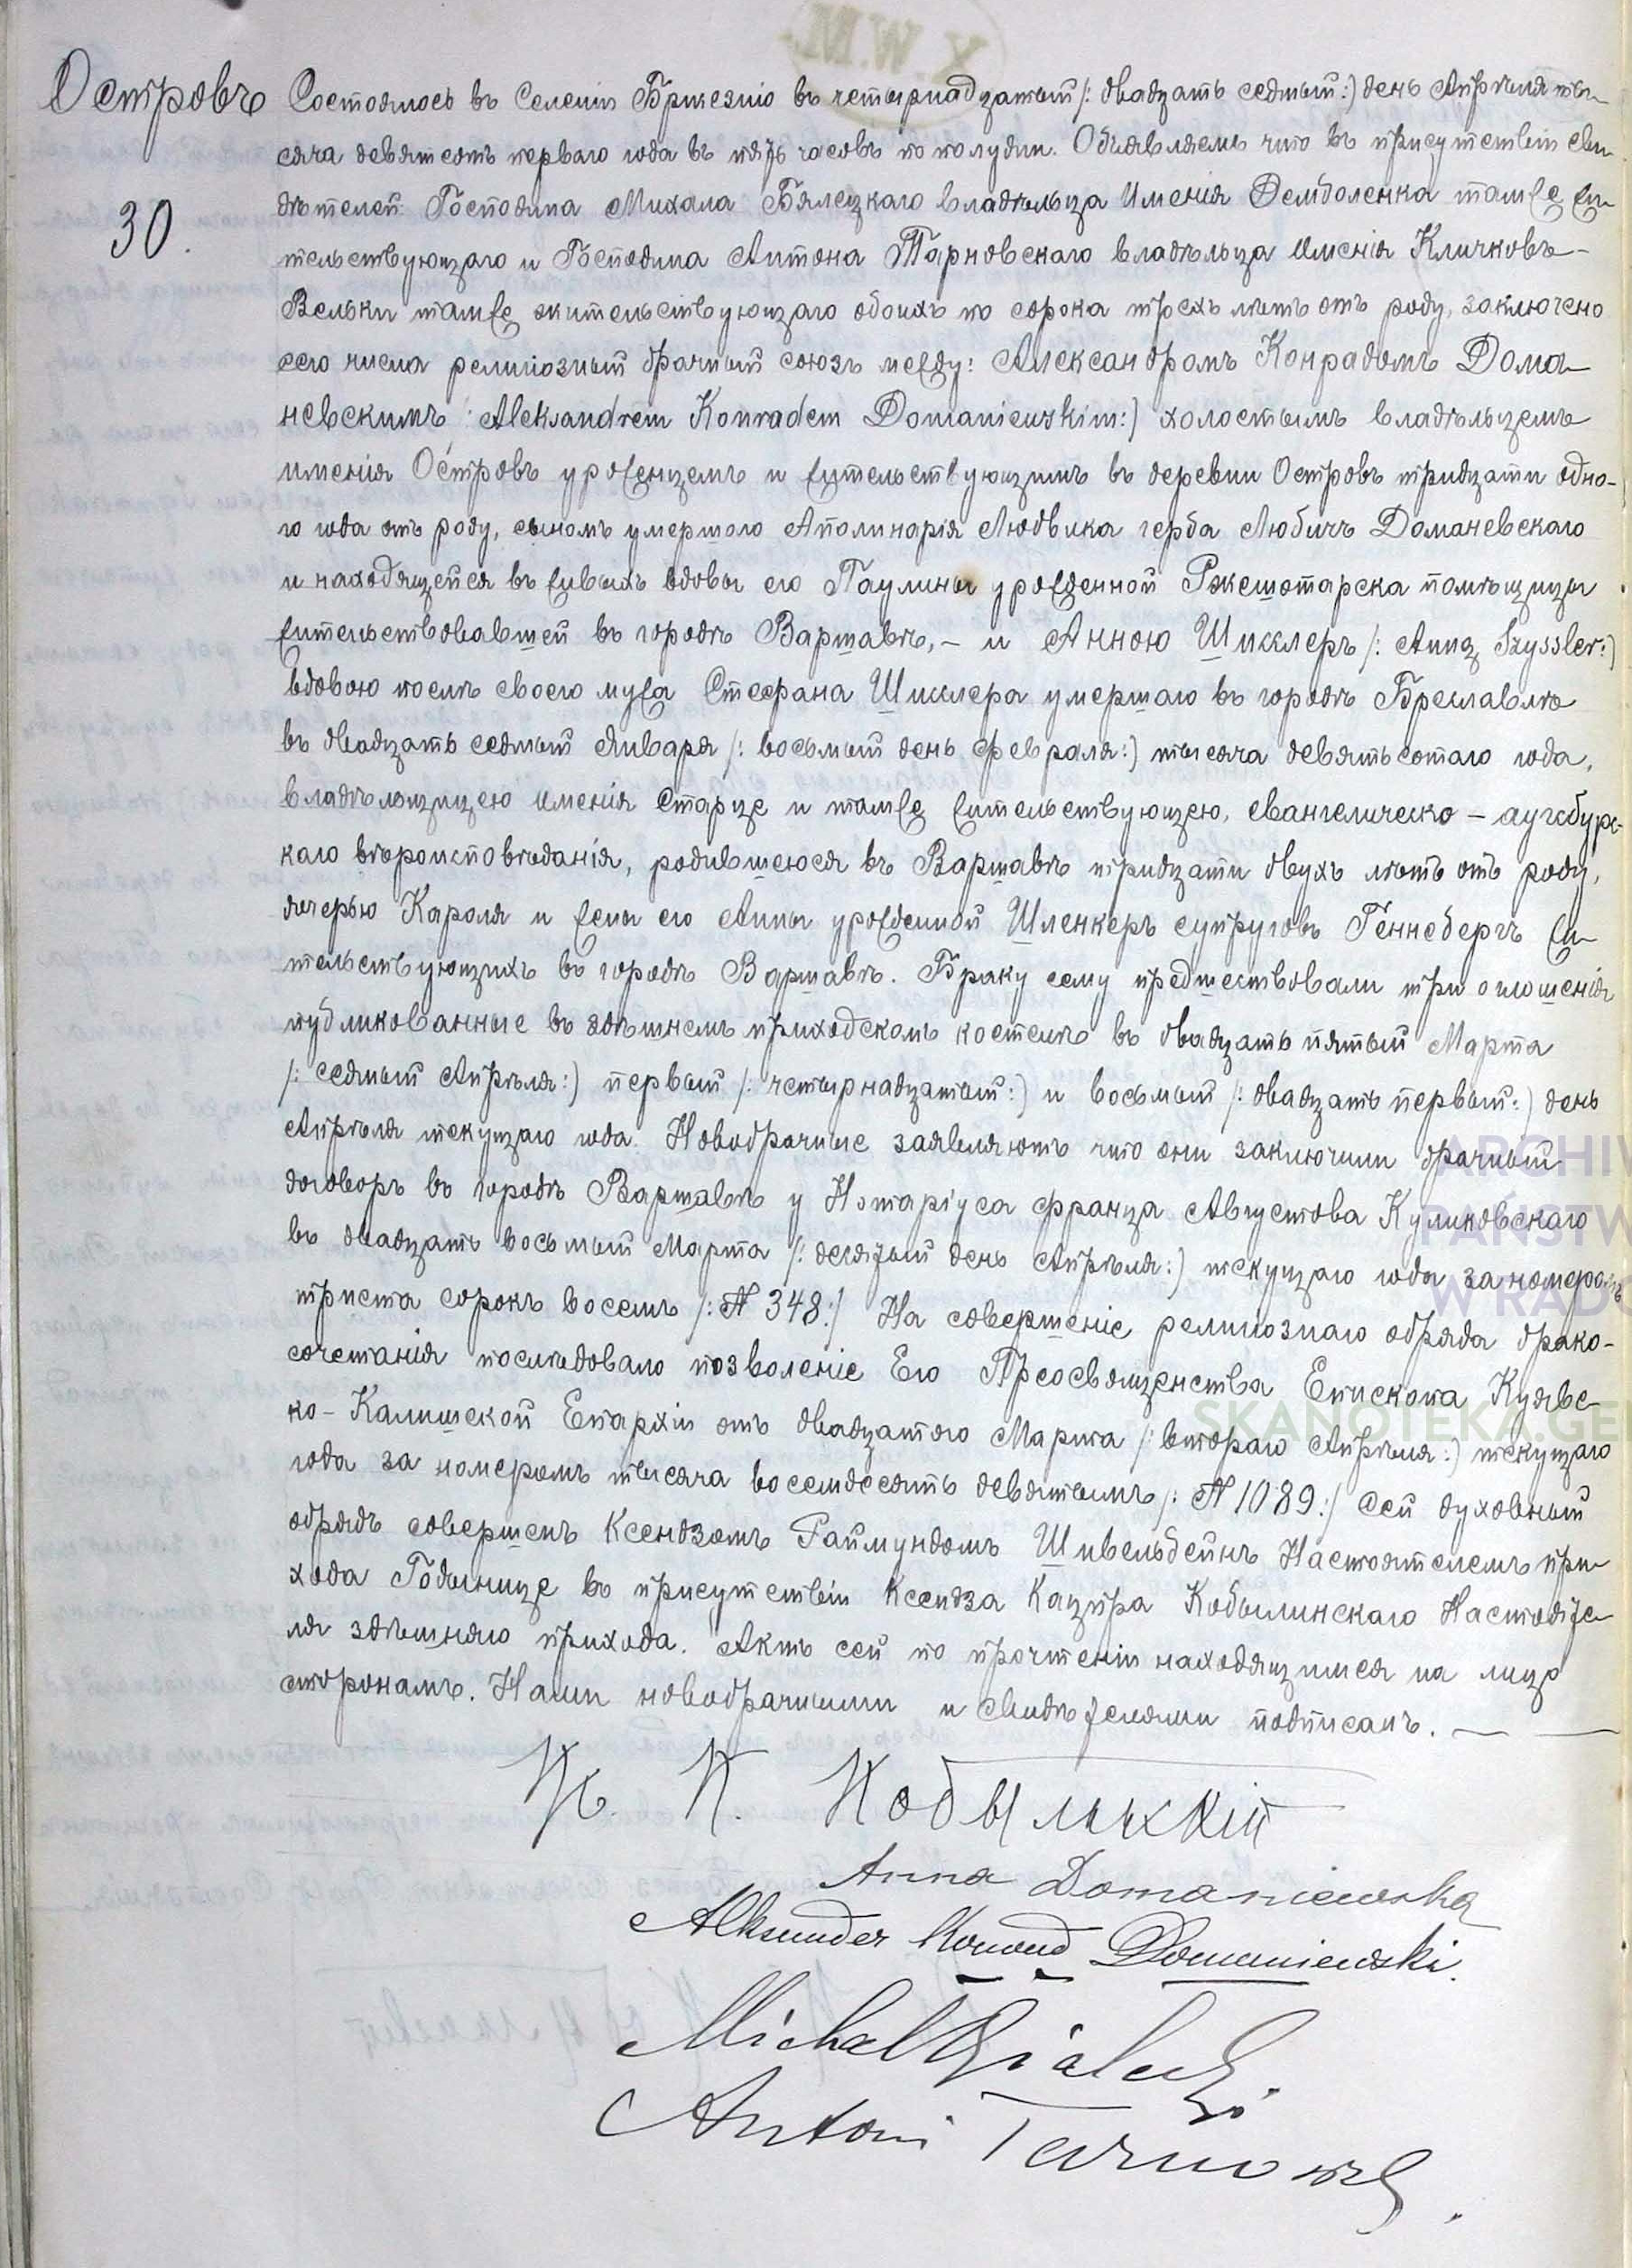 Островъ
30.
Состоялось въ Селенiи Бржезнiо въ четырнадцатый /: двадцать седмый :/ день Апрѣля ты-
сяча девятсотъ перваго года въ пять часовъ по полудни. Объявляемъ что въ присутствiи сви-
дѣтелей Господина Михала Бялецкаго владѣльца Имѣнiя Демболенка тамже жи-
тельствующаго и Господина Антона Тарновскаго владѣльца Имѣнiя Кличковъ-
Вельки тамже жительствующаго обоихъ по сорока трехъ лѣтъ отъ роду, заключено
сего числа религiозный брачный союзъ между: Александромъ Конрадомъ Дома-
невскимъ /: Aleksandrem Konradem Domaniewskim :/ холостымъ владѣльцемъ
имѣнiя Островъ уроженцемъ и жительствующимъ въ деревни Островъ тридцати одно-
го года отъ роду, сыномъ умершого Аполинарiя Людвика герба Любичъ Доманевскаго
и находящейся въ живыхъ вдовы его Паулины урожденной Ржешотарска помѣщицы
жительствовавшей въ городѣ Варшавѣ, – и Анною Шисслеръ /: Anną Szyssler :/
вдовою послѣ своего мужа Стефана Шисслера умершаго въ городѣ Бреславлѣ
въ двадцать седмый Января /: восьмый день Февраля :/ тысяча девятьсотаго года,
владѣльщицею имѣнiя Старце и тамже жительствующею, евангелическо – аугсбурс-
каго вѣроисповѣданiя, родившеюся въ Варшавѣ тридцати двухъ лѣтъ отъ роду,
дочерью Кароля и жены его Анны урожденной Шленкеръ супруговъ Геннебергъ жи-
тельствующихъ въ городѣ Варшавѣ. Браку сему предшествовали три оглошенiя
публикованные въ здѣшнемъ приходскомъ костелѣ въ двадцать пятый Марта
/: седмый Апрѣля :/ первый /: четырнадцатый :/ и восьмый /: двадцать первый :/ день
Апрѣля текущаго года. Новобрачные заявляютъ что они заключили брачный
договоръ въ городѣ Варшавѣ у Нотарiуса Франца Августова Куликовскаго
въ двадцать восьмый Марта /: десятый день Апрѣля :/ текущаго года за номеромъ
триста сорокъ восемь /: N 348 :/ На совершенiе религiознаго обряда брако-
сочетанiя послѣдовало позволенiе Его Преосвященства Епископа Куявс-
ко-Калишской Епархiи отъ двадцатого Марта /: втораго Апрѣля :/ текущаго
года за номеромъ тысяча восемдесятъ девятымъ /: N 1089 :/ Сей духовный
обрядъ совершенъ Ксендзомъ Раймундомъ Шивельбейнъ Настоятелемъ при-
хода Годынице въ присутствiи Ксендза Кацпра Кобылинскаго Настояте-
ля здѣшняго прихода. Актъ сей по прочтенiи находящимся на лицо
сторонамъ. Нами новобрачными и свидѣтелями подписанъ.
К. К. Кобылинскiй
Anna Domaniewska
Aleksander Konrad Domaniewski.
Michał Bialecki
Antoni Tarnowski.
ARCHIW
PAŃSTW
W RADO
SKANOTEKA.GEN